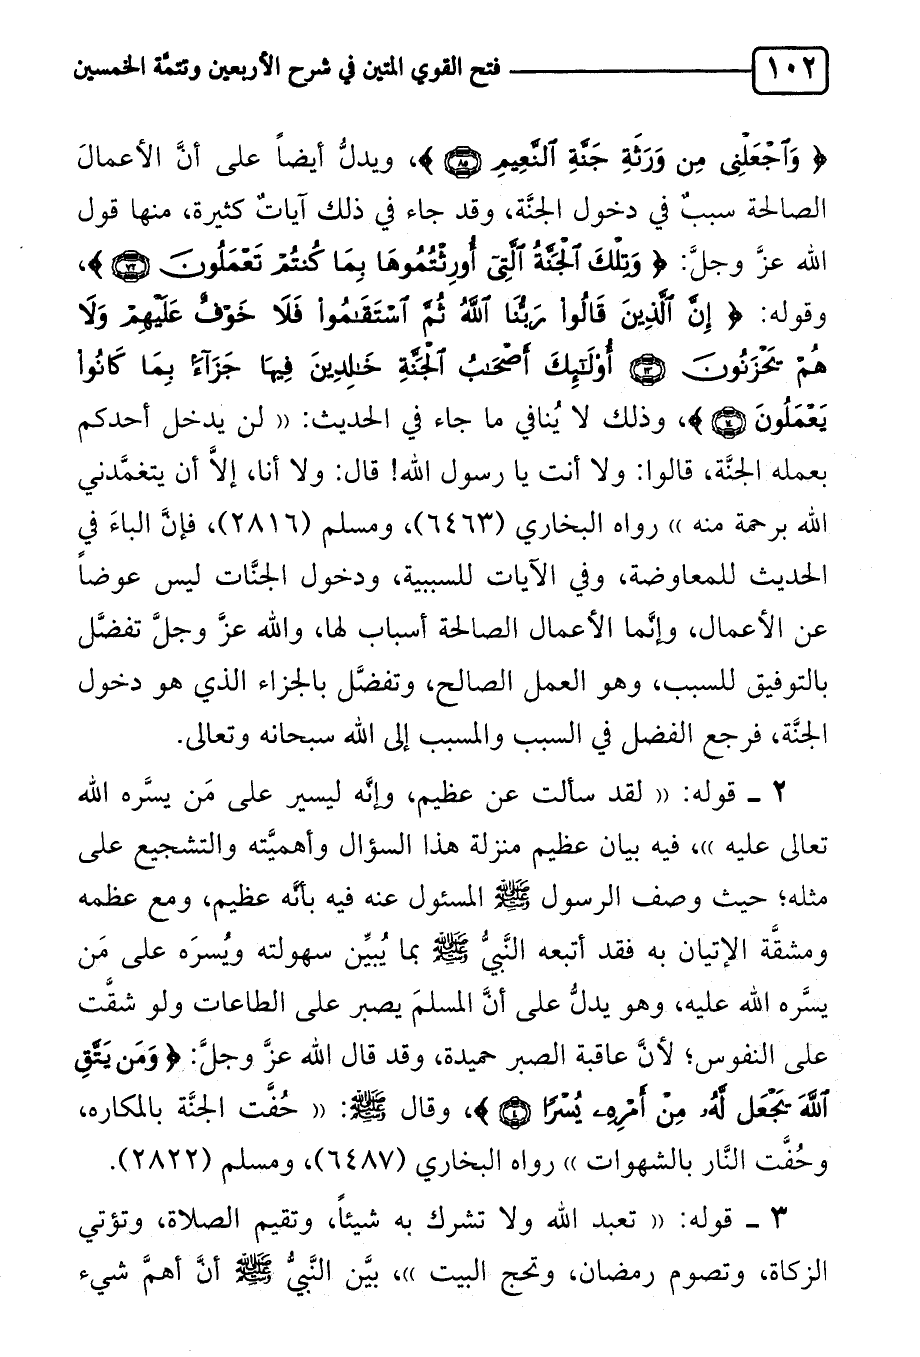 ١٠٢ فتح القوي المتين في شرح الأربعين وتتمَّة الخمسين
﴿ وَٱجْعَلْنِى مِن وَرَثَةِ جَنَّةِ ٱلنَّعِيمِ ٨٥ ﴾، ويدلُّ أيضاً على أنَّ الأعمالَ
الصالحة سببٌ في دخول الجنَّة، وقد جاء في ذلك آياتٌ كثيرة، منها قول
الله عزَّ وجلَّ: ﴿ وَتِلْكَ ٱلْجَنَّةُ ٱلَّتِىٓ أُورِثْتُمُوهَا بِمَا كُنتُمْ تَعْمَلُونَ ٧٢ ﴾،
وقوله: ﴿ إِنَّ ٱلَّذِينَ قَالُوا۟ رَبُّنَا ٱللَّهُ ثُمَّ ٱسْتَقَـٰمُوا۟ فَلَا خَوْفٌ عَلَيْهِمْ وَلَا
هُمْ يَحْزَنُونَ ١٣ أُو۟لَـٰٓئِكَ أَصْحَـٰبُ ٱلْجَنَّةِ خَـٰلِدِينَ فِيهَا جَزَآءًۢ بِمَا كَانُوا۟
يَعْمَلُونَ ١٤ ﴾، وذلك لا يُنافي ما جاء في الحديث: (( لن يدخل أحدكم
بعمله الجنَّة، قالوا: ولا أنت يا رسول الله! قال: ولا أنا، إلاَّ أن يتغمَّدني
الله برحمة منه )) رواه البخاري (٦٤٦٣)، ومسلم (٢٨١٦)، فإنَّ الباءَ في
الحديث للمعاوضة، وفي الآيات للسببية، ودخول الجنَّات ليس عوضاً
عن الأعمال، وإنَّما الأعمال الصالحة أسباب لها، والله عزَّ وجلَّ تفضَّل
بالتوفيق للسبب، وهو العمل الصالح، وتفضَّل بالجزاء الذي هو دخول
الجنَّة، فرجع الفضل في السبب والمسبب إلى الله سبحانه وتعالى.
٢ ـ قوله: (( لقد سألت عن عظيم، وإنَّه ليسير على مَن يسَّره الله
تعالى عليه ))، فيه بيان عظيم منزلة هذا السؤال وأهميَّته والتشجيع على
مثله؛ حيث وصف الرسول ﷺ المسئول عنه فيه بأنَّه عظيم، ومع عظمه
ومشقَّة الإتيان به فقد أتبعه النَّبيُّ ﷺ بما يُبيِّن سهولته ويُسرَه على مَن
يسَّره الله عليه، وهو يدلُّ على أنَّ المسلمَ يصبر على الطاعات ولو شقَّت
على النفوس؛ لأنَّ عاقبة الصبر حميدة، وقد قال الله عزَّ وجلَّ: ﴿ وَمَن يَتَّقِ
ٱللَّهَ يَجْعَل لَّهُۥ مِنْ أَمْرِهِۦ يُسْرًا ٤ ﴾، وقال ﷺ: (( حُفَّت الجنَّة بالمكاره،
وحُفَّت النَّار بالشهوات )) رواه البخاري (٦٤٨٧)، ومسلم (٢٨٢٢).
٣ ـ قوله: (( تعبد الله ولا تشرك به شيئاً، وتقيم الصلاة، وتؤتي
الزكاة، وتصوم رمضان، وتحج البيت ))، بيَّن النَّبيُّ ﷺ أنَّ أهمَّ شيء